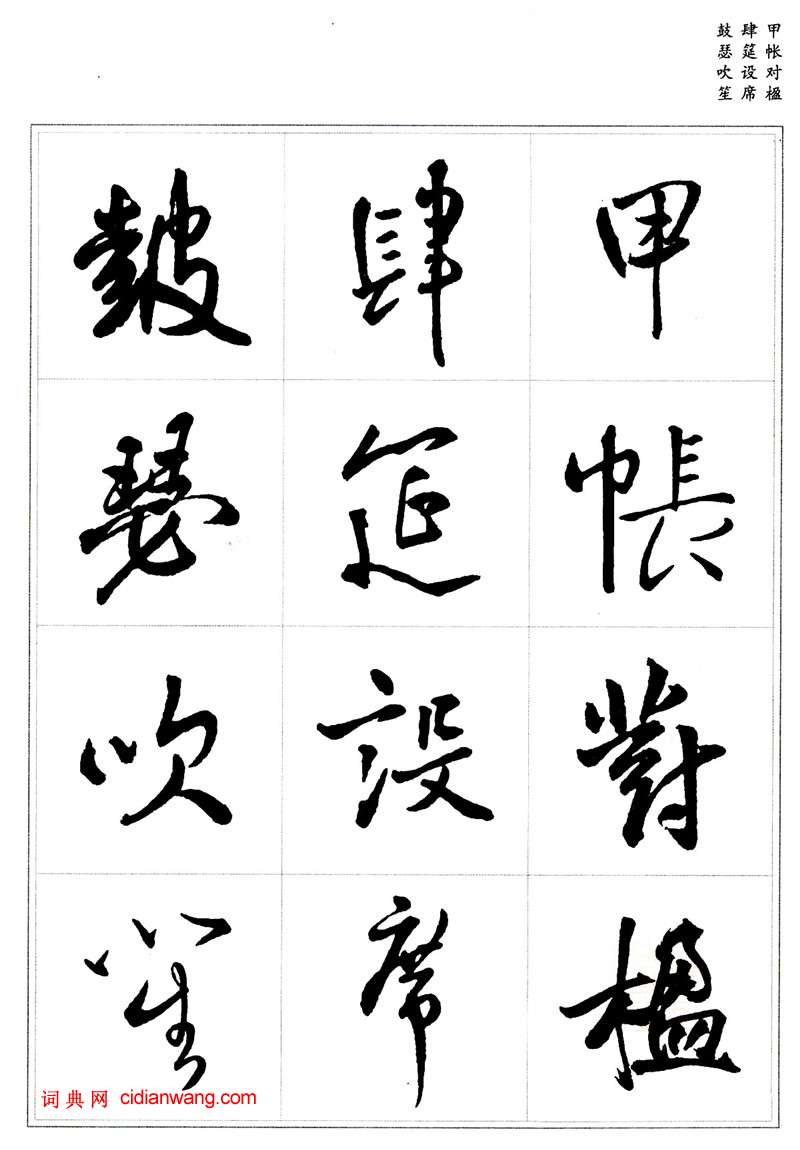 甲帐对楹
肆筵设席
鼓瑟吹笙
甲帳對楹
肆筵設席
鼓瑟吹笙
词典网 cidianwang.com